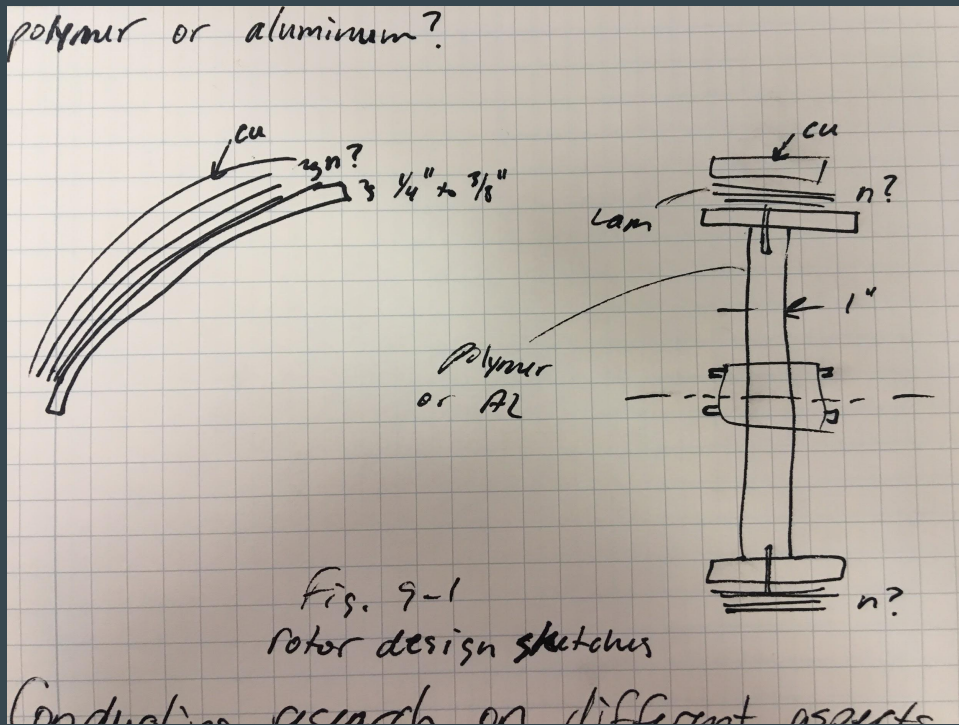 polymer or aluminum?
cu
n?
1/4" to 3/8"
cu
n?
Lam
1"
polymer
or Al
n?
Fig. 9-1
rotor design sketches
Conducting research on different aspects